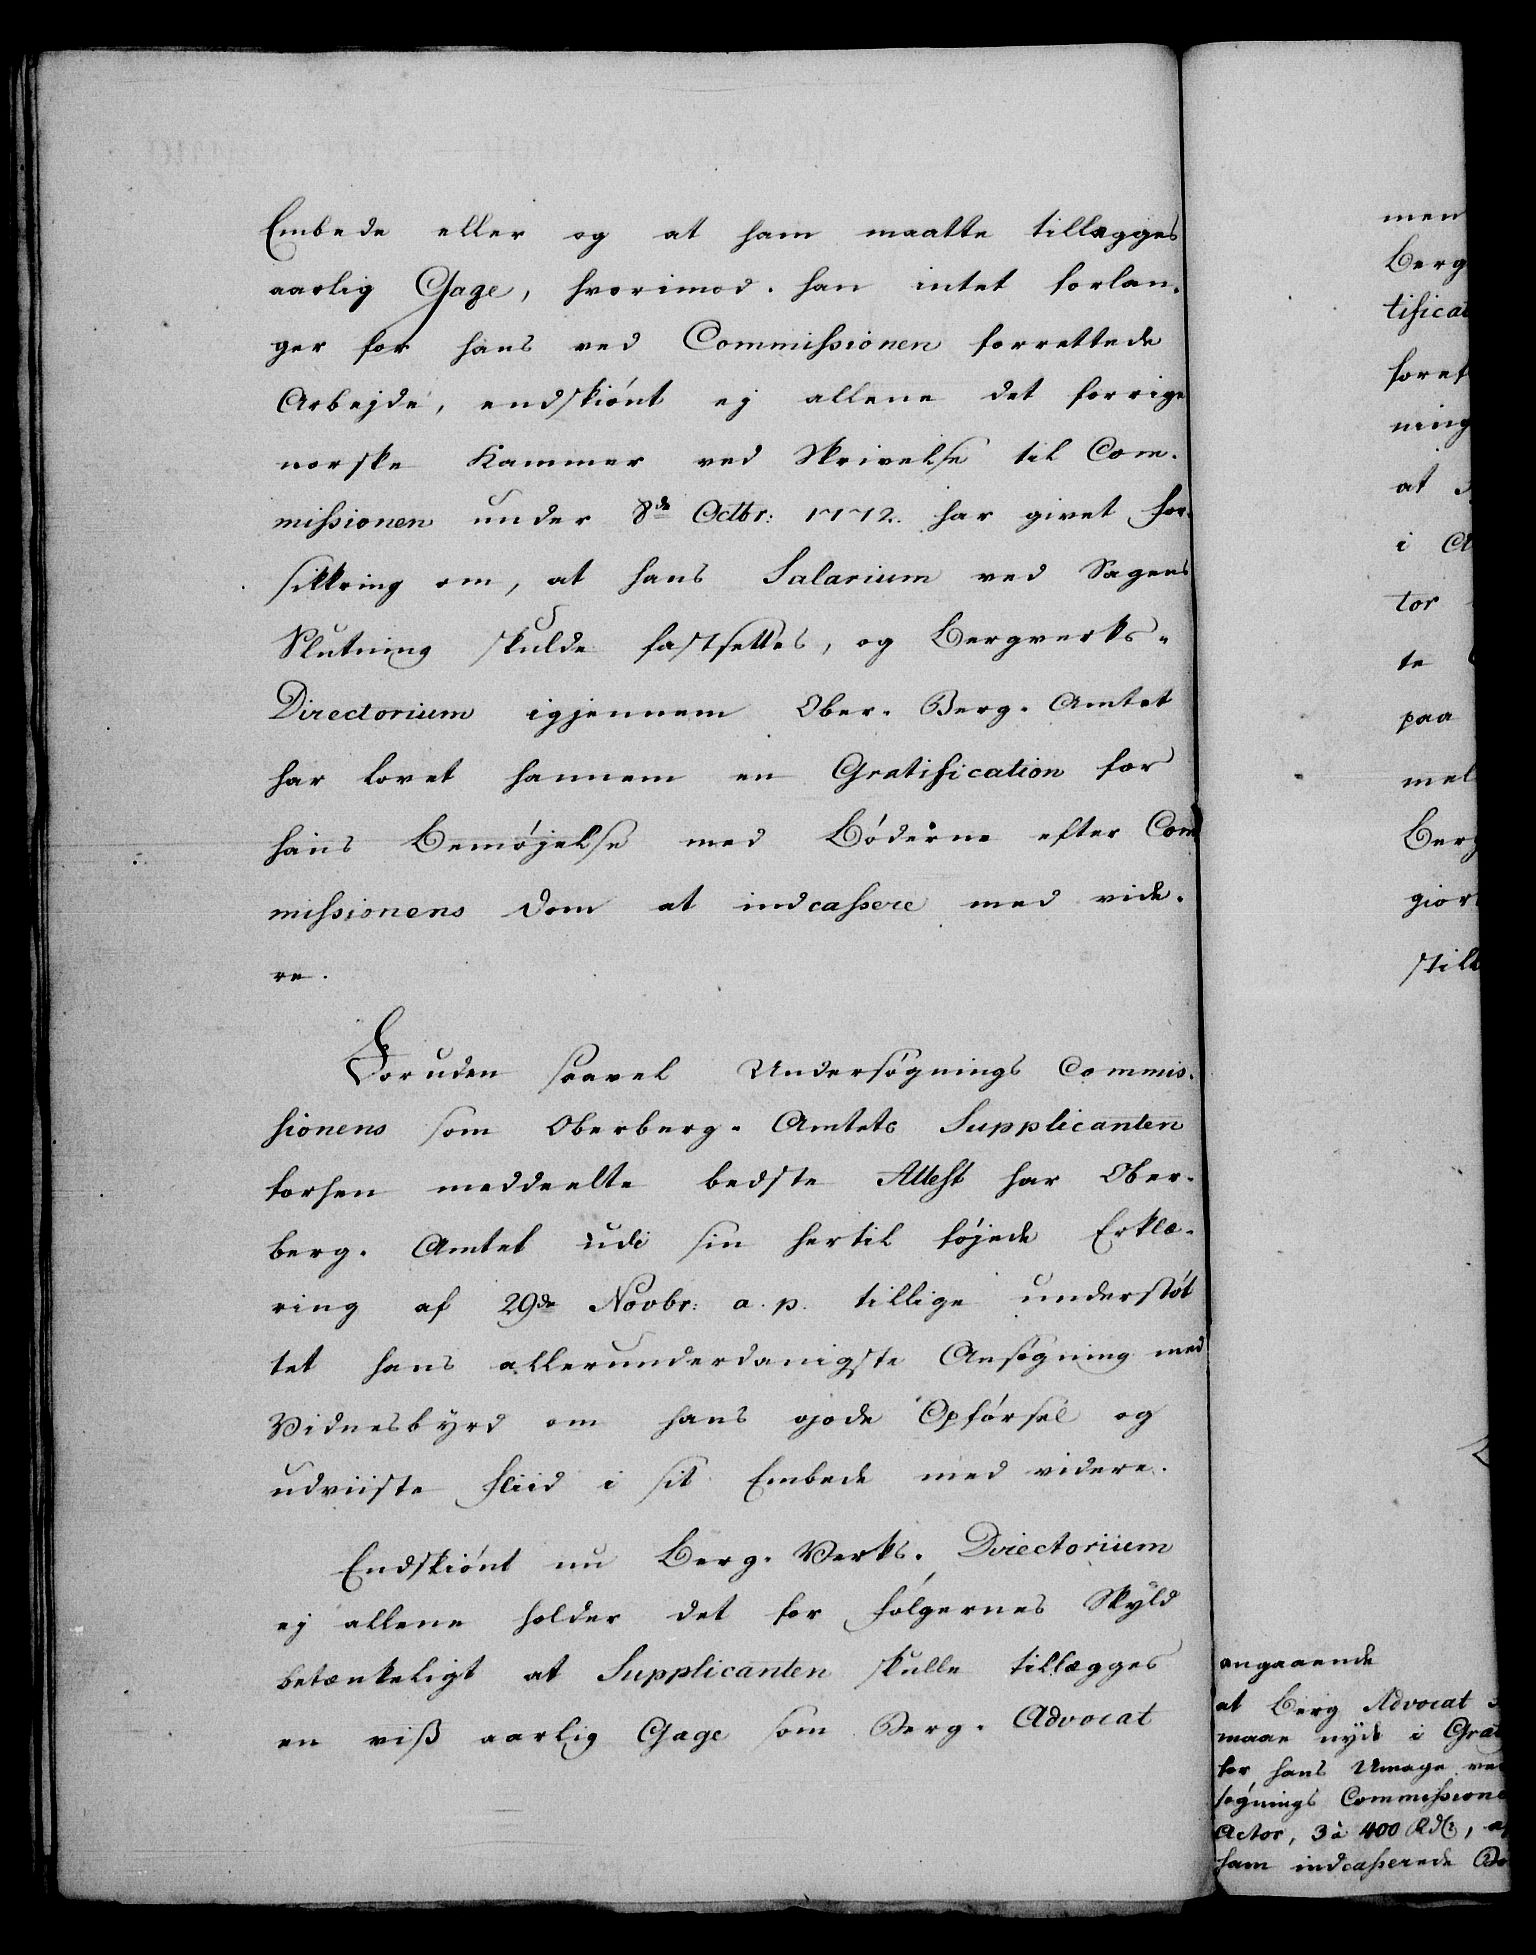 Embede eller og at ham maatte tillægges
aarlig Gage, hvorimod han intet forlan-
ger for hans ved Commissionen forrettede
Arbejde, endskiónt ej allene det forrige
norske Kammer ved Skrivelse til Com-
missionen under 8de Octbr: 1772. har givet for-
sikkring om, at hans Salarium ved Sagens
Slutning skulde fastsettes, og Bergverks-
Directorium igjennem Ober-Berg-Amtet
har lovet hannem en Gratification for
hans Bemøjelse med Bóderne efter Com
missionens Dom at indcassere med vide-
re.
Foruden saavel Undersøgnings Commis-
sionens som Oberberg-Amtets Supplicanten
forhen meddeelte bedste Attest har Ober-
berg-Amtet udi sin hertil føjede Erklæ-
ring af 29de Novbr: a. p. tillige understót
tet hans allerunderdanigste Ansøgning med
Vidnesbyrd om hans gode Opførsel og
udviiste Fliid i sit Embede med videre.
Endskiónt nu Berg-Verks-Directorium
ej allene holder det for Fólgernes Skyld
betænkeligt at Supplicanten skulle tillægges
en viß aarlig Gage som Berg-Advocat
men
Berg
tificat
foref
ning
at
i
tor
te
paa
mel
Berg
gior
still
angaaende
at Berg Advocat
maae nyde i Grat
for hans Umage ve
søgnings Commissione
Actor, 3 à 400 Rdlr, a
ham indcasserede Bø